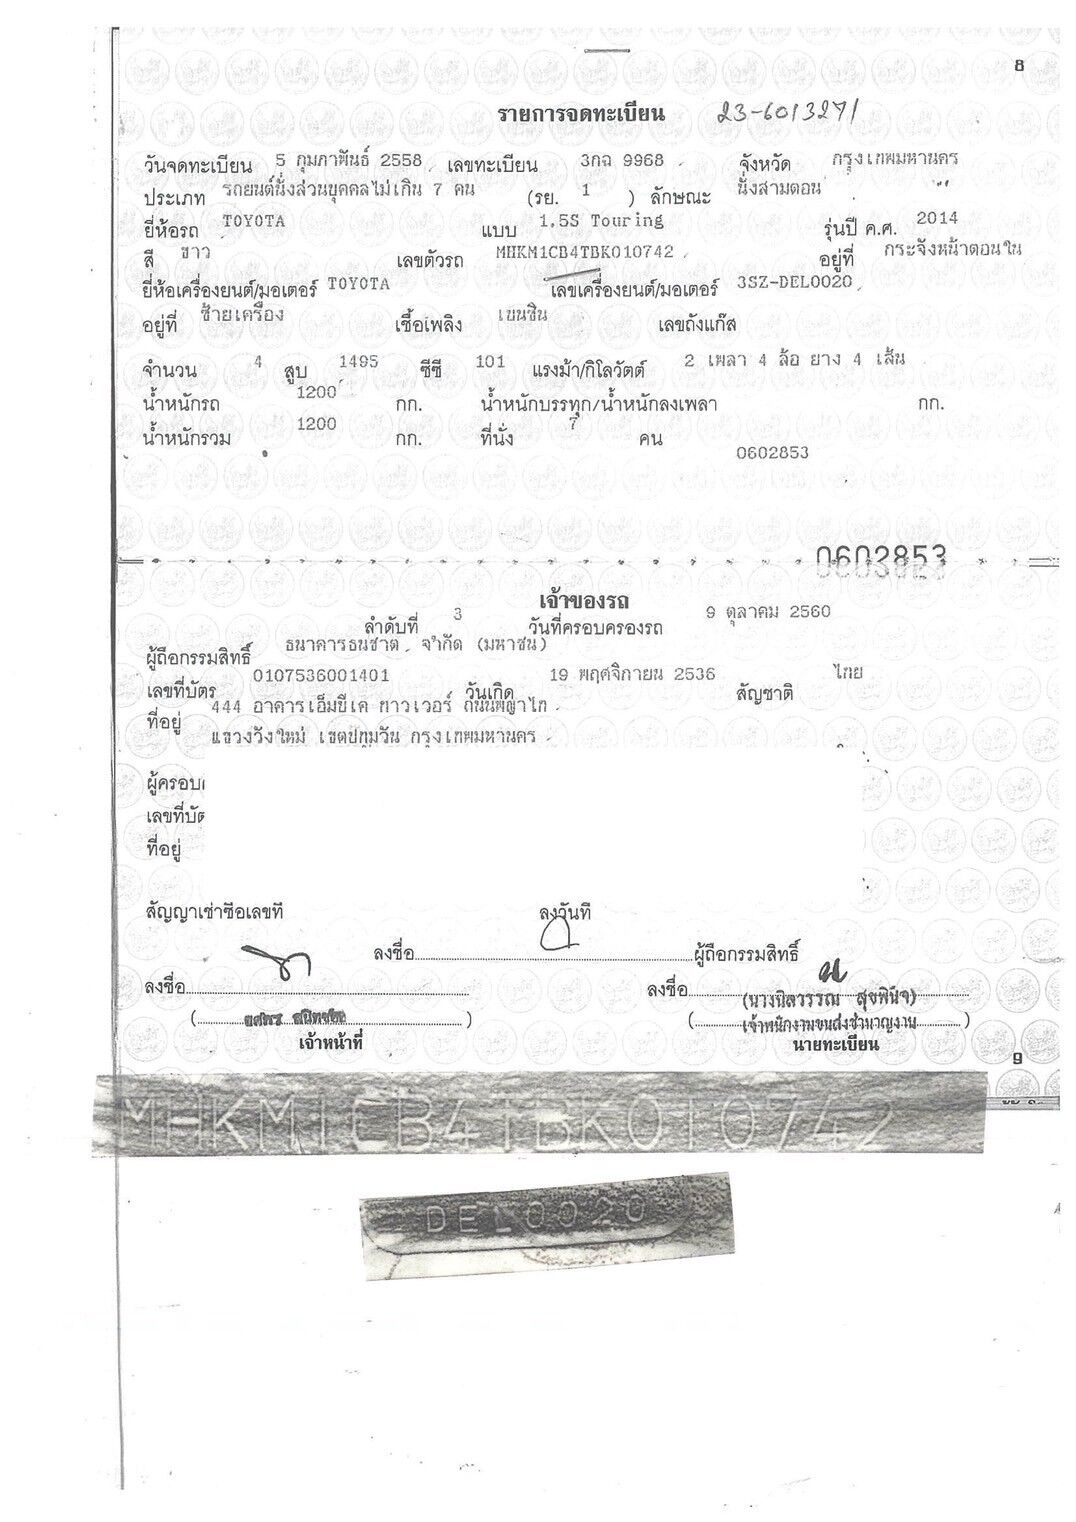 8
รายการจดทะเบียน 23-6013271
วันจดทะเบียน 5 กุมภาพันธ์ 2558 เลขทะเบียน 3กฉ 9968 จังหวัด กรุงเทพมหานคร
ประเภท รถยนต์นั่งส่วนบุคคลไม่เกิน 7 คน (รย. 1 ) ลักษณะ นั่งสามตอน
ยี่ห้อรถ TOYOTA แบบ 1.5S Touring รุ่นปี ค.ศ. 2014
สี ขาว เลขตัวรถ MHKM1CB4TBK010742 อยู่ที่ กระจังหน้าตอนใน
ยี่ห้อเครื่องยนต์/มอเตอร์ TOYOTA เลขเครื่องยนต์/มอเตอร์ 3SZ-DEL0020
อยู่ที่ ซ้ายเครื่อง เชื้อเพลิง เบนซิน เลขถังแก๊ส
จำนวน 4 สูบ 1495 ซีซี 101 แรงม้า/กิโลวัตต์ 2 เพลา 4 ล้อ ยาง 4 เส้น
น้ำหนักรถ 1200 กก. น้ำหนักบรรทุก/น้ำหนักลงเพลา กก.
น้ำหนักรวม 1200 กก. ที่นั่ง 7 คน
0602853
0602853
เจ้าของรถ
ลำดับที่ 3 วันที่ครอบครองรถ 9 ตุลาคม 2560
ผู้ถือกรรมสิทธิ์ ธนาคารธนชาต จำกัด (มหาชน)
เลขที่บัตร 0107536001401 วันเกิด 19 พฤศจิกายน 2536 สัญชาติ ไทย
ที่อยู่ 444 อาคารเอ็มบีเค ทาวเวอร์ ถนนพญาไท
แขวงวังใหม่ เขตปทุมวัน กรุงเทพมหานคร
ผู้ครอบ
เลขที่บัต
ที่อยู่
สัญญาเช่าซื้อเลขที่ ลงวันที่
ลงชื่อ ผู้ถือกรรมสิทธิ์
ลงชื่อ ลงชื่อ
(นางนิลวรรณ สุขพินิจ)
( ) ( เจ้าพนักงานขนส่งชำนาญงาน )
เจ้าหน้าที่ นายทะเบียน
9
MHKM1CB4TBK010742
DEL0020